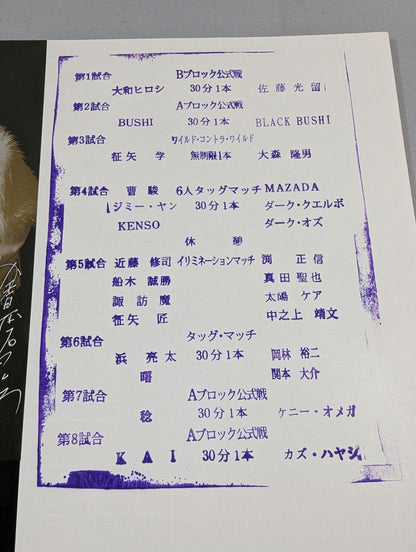 第1試合 Bブロック公式戦
大和ヒロシ 30分1本 佐藤光留
第2試合 Aブロック公式戦
BUSHI 30分1本 BLACK BUSHI
第3試合 ワイルド・コントラ・ワイルド
征矢 学 無制限1本 大森 隆男
第4試合 曹駿 6人タッグマッチ MAZADA
ジミー・ヤン 30分1本 ダーク・クエルボ
KENSO ダーク・オズ
休憩
第5試合 近藤 修司 イリミネーションマッチ 渕 正信
船木 誠勝 真田聖也
諏訪魔 太陽 ケア
征矢 匠 中之上 靖文
第6試合 タッグ・マッチ
浜 亮太 30分1本 岡林 裕二
曙 関本 大介
第7試合 Aブロック公式戦
稔 30分1本 ケニー・オメガ
第8試合 Aブロック公式戦
KAI 30分1本 カズ・ハヤシ